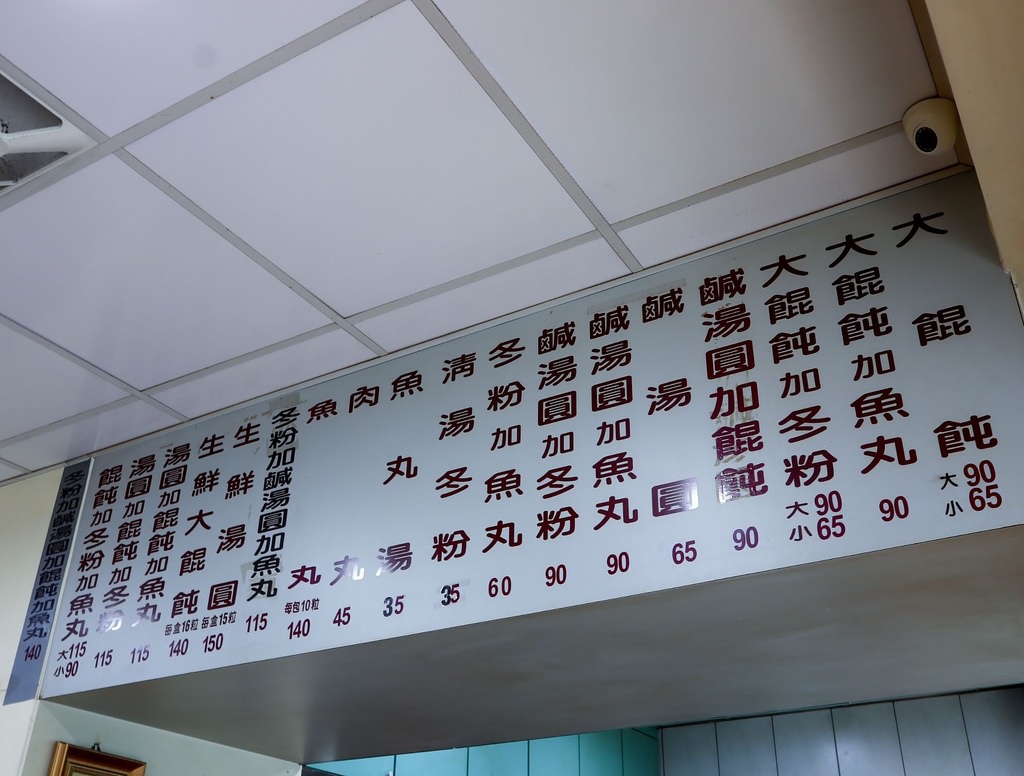 大餛飩
大90
小65
大餛飩加魚丸
90
大餛飩加冬粉
大90
小65
鹹湯圓加餛飩
90
鹹湯圓
65
鹹湯圓加魚丸
90
鹹湯圓加冬粉
90
冬粉加魚丸
60
清湯冬粉
35
魚丸湯
35
肉丸
45
魚丸
每包10粒
140
冬粉加鹹湯圓加魚丸
115
生鮮湯圓
每盒15粒
150
生鮮大餛飩
每盒16粒
140
湯圓加餛飩加魚丸
115
湯圓加餛飩加冬粉
115
餛飩加冬粉加魚丸
大115
小90
冬粉加鹹湯圓加餛飩加魚丸
140